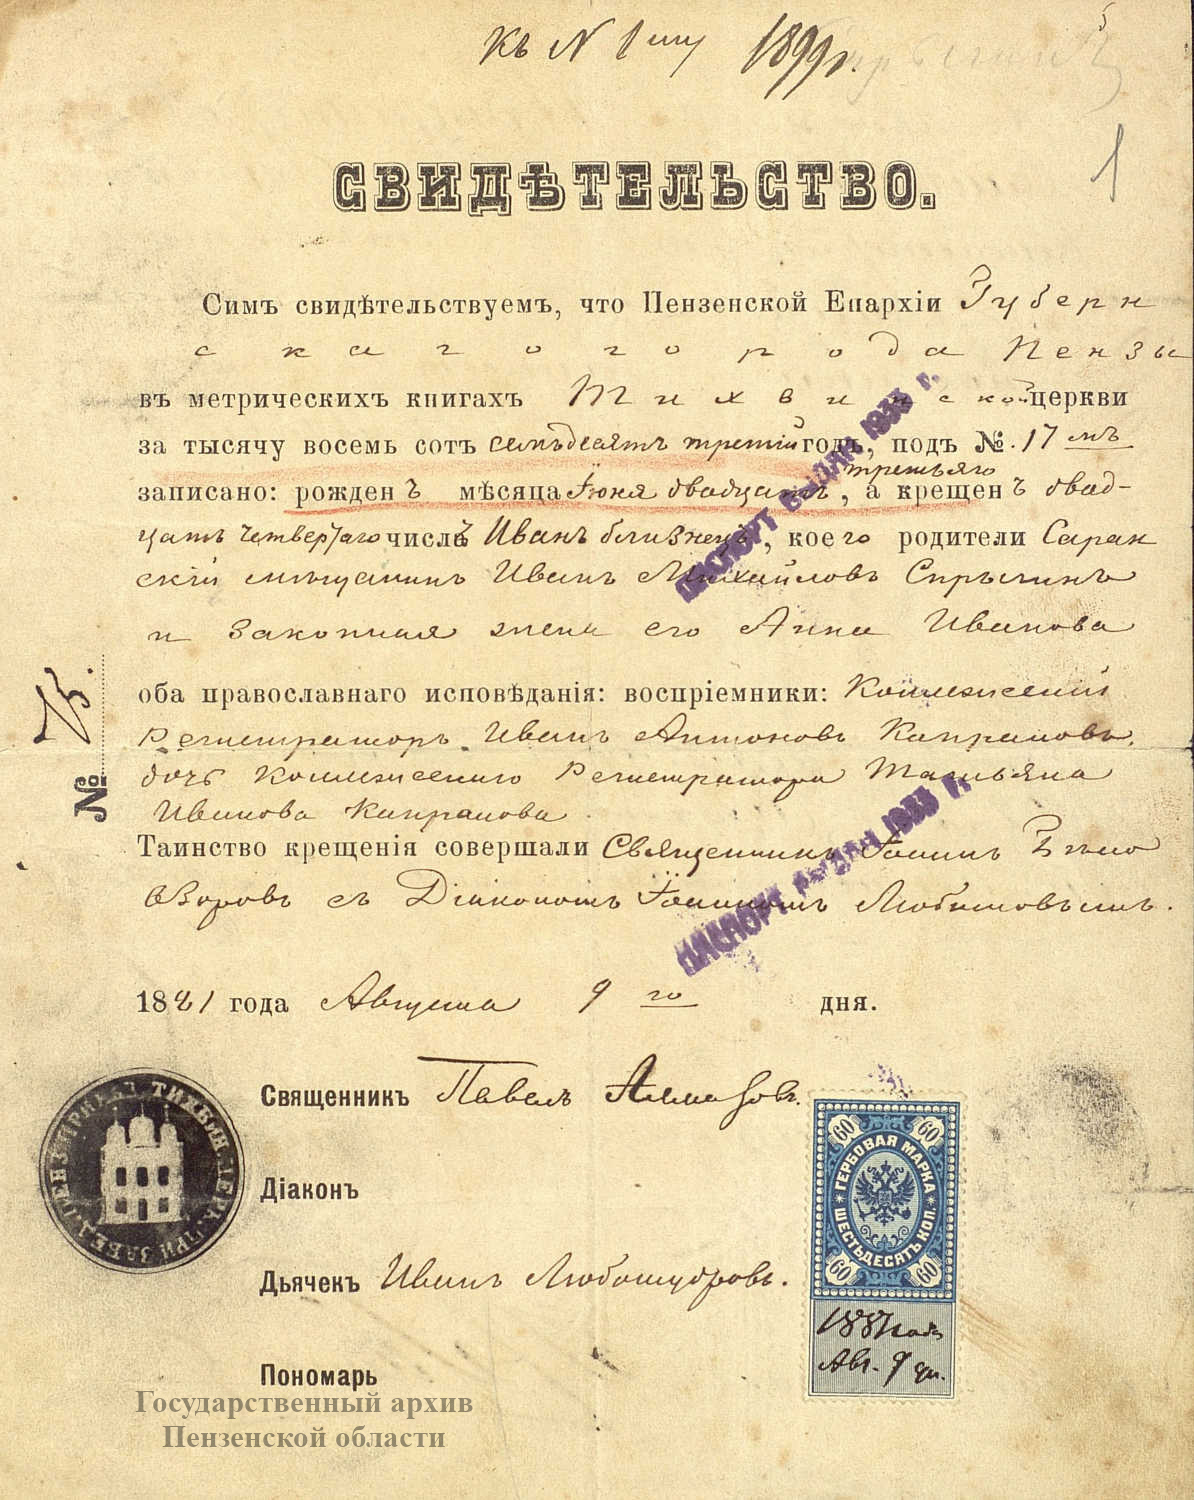 Къ N 1му 1899г.
1
СВИДѢТЕЛЬСТВО.
Симъ свидѣтельствуемъ, что Пензенской Епархіи Губерн
скаго города Пензы
въ метрическихъ книгахъ Тихвинской церкви
за тысячу восемь сотъ семьдесятъ третій годъ, подъ №. 17 мъ
записано: рожденъ мѣсяца Іюня двадцать третьяго, а крещенъ двад-
цать четвертаго числа Иванъ близнецъ, коего родители Саран
скій мѣщанинъ Иванъ Михайловъ Спрыгинъ
и законная жена его Анна Иванова
оба православнаго исповѣданія: воспріемники: Коллежскій
Регистраторъ Иванъ Антоновъ Капраловъ,
дочь Коллежскаго Регистратора Татьяна
Иванова Капралова.
Таинство крещенія совершали Священникъ Іоаннъ Бѣло
озоровъ съ Діакономъ Іоанномъ Любимовымъ.
№
ПАСПОРТ ВЫДАН 1933 г.
ПАСПОРТ ВЫДАН 1933 г.
1881 года Августа 9 го дня.
Священникъ Павелъ Алмазовъ.
Діаконъ
Дьячекъ Иванъ Любомудровъ.
Пономарь
60 60
ГЕРБОВАЯ МАРКА
ШЕСТЬДЕСЯТЪ КОП.
60 60
1881 года
Авг. 9 дн.
Государственный архив
Пензенской области